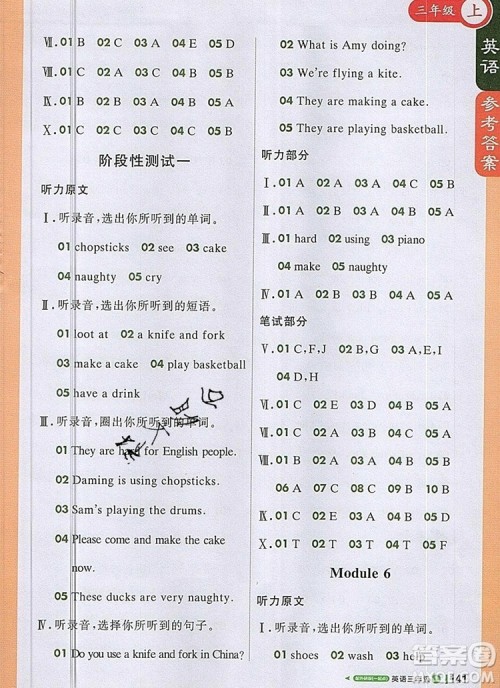 三年级 上
英语
参考答案
Ⅶ. 01 B 02 C 03 A 04 E 05 D
Ⅷ. 01 B 02 C 03 A 04 D 05 B
Ⅸ. 01 B 02 A 03 B 04 A 05 B
Ⅹ. 01 B 02 C 03 A 04 C 05 B
阶段性测试一
听力原文
Ⅰ. 听录音,选出你所听到的单词。
01 chopsticks 02 see 03 cake
04 naughty 05 cry
Ⅱ. 听录音,选出你所听到的短语。
01 loot at 02 a knife and fork
03 make a cake 04 play basketball
05 have a drink
Ⅲ. 听录音,圈出你所听到的单词。
01 They are hard for English people.
02 Daming is using chopsticks.
03 Sam's playing the drums.
04 Please come and make the cake now.
05 These ducks are very naughty.
Ⅳ. 听录音,选择你所听到的句子。
01 Do you use a knife and fork in China?
02 What is Amy doing?
03 We're flying a kite.
04 They are making a cake.
05 They are playing basketball.
听力部分
Ⅰ. 01 A 02 A 03 A 04 A 05 B
Ⅱ. 01 A 02 B 03 A 04 A 05 B
Ⅲ. 01 hard 02 using 03 piano
04 make 05 naughty
Ⅳ. 01 A 02 B 03 B 04 A 05 A
笔试部分
Ⅴ. 01 C,F,J 02 B,G 03 A,E,I
04 D,H
Ⅵ. 01 A 02 B 03 A 04 B 05 B
Ⅶ. 01 C 02 A 03 B 04 B 05 A
Ⅷ. 01 B 02 B 03 A 04 B 05 B
06 A 07 B 08 C 09 A 10 C
Ⅸ. 01 C 02 A 03 D 04 B 05 E
Ⅹ. 01 T 02 T 03 F 04 T 05 F
Module 6
听力原文
Ⅰ. 听录音,选出你所听到的单词。
01 shoes 02 wash 03 help
英语三年级 上 141